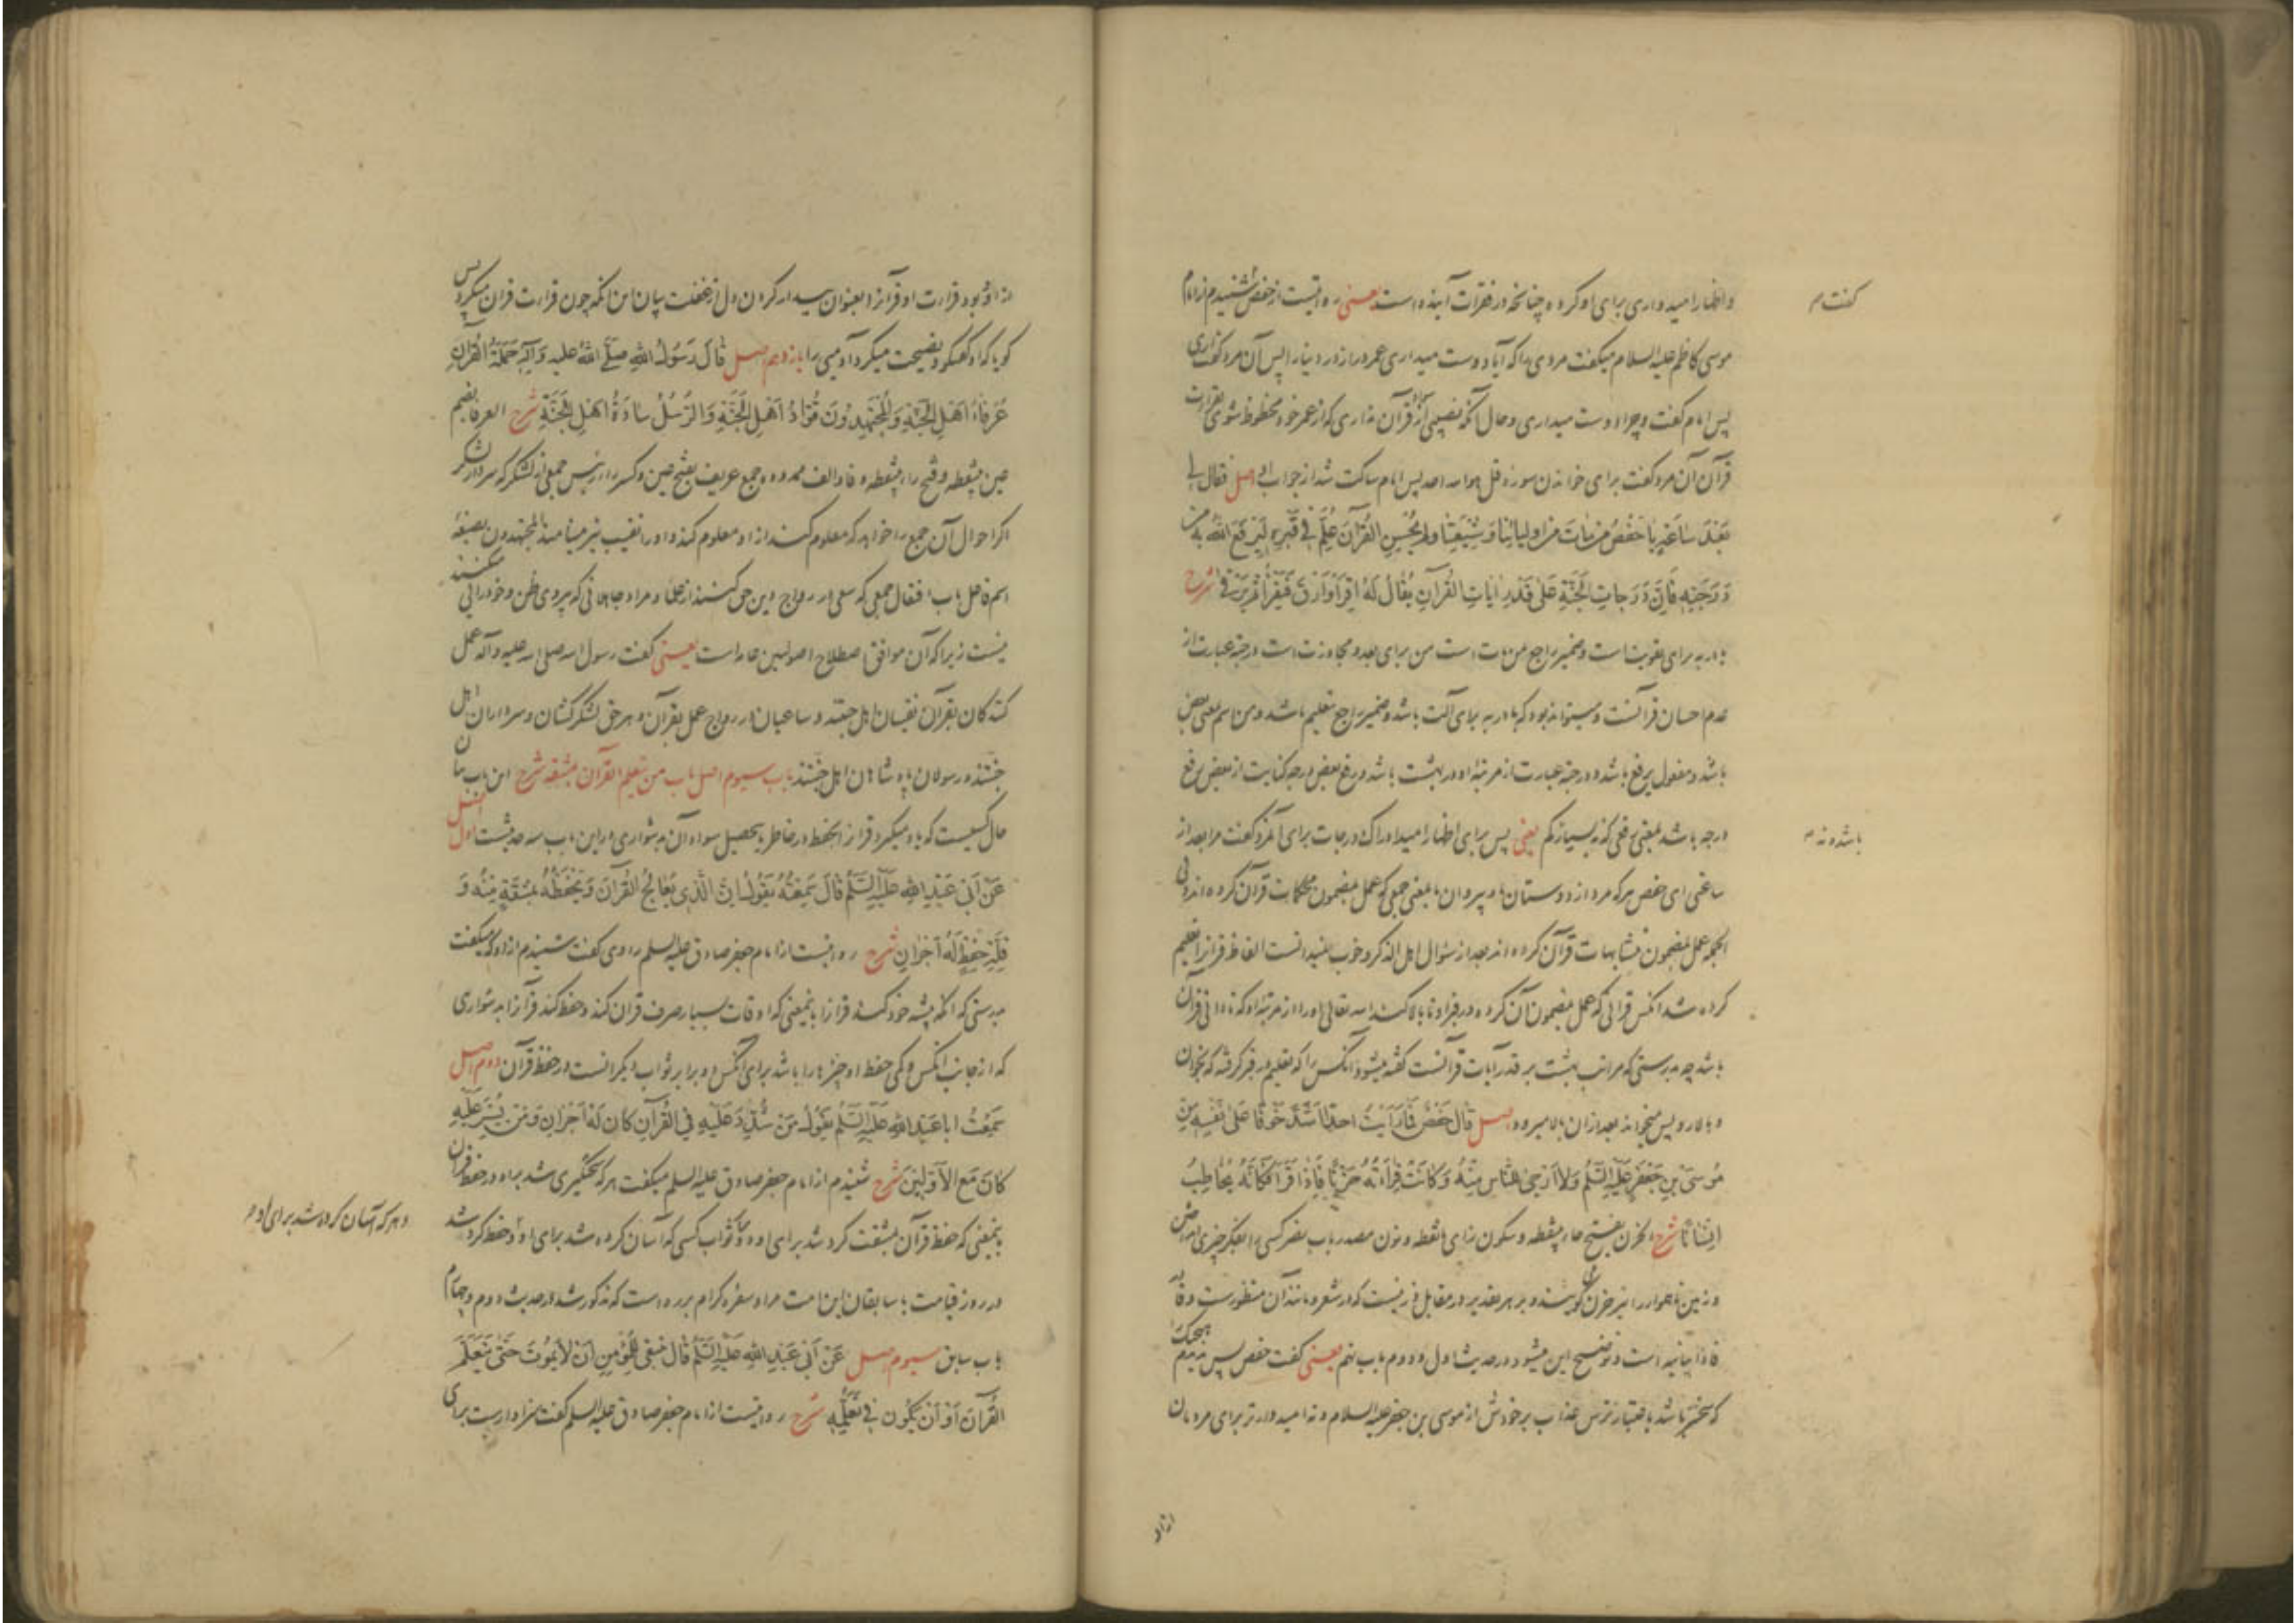 و اظهار امیدواری برای او کرده چنانچه در فقرات آینده است یعنی روایتست از حفص گفت شنیدم از امام
موسی کاظم علیه السلام میگفت مردی را که آیا دوست میداری عمر دراز در دنیا را پس آن مرد گفت آری
پس امام گفت و چرا دوست میداری و حال آنکه نصیبی از قرآن نداری که از عمر خود محظوظ شوی بقراءت
قرآن آن مرد گفت برای خواندن سوره قل هو الله احد پس امام ساکت شد از جواب اصل فقال لی
بَعْدَ سَاعَةٍ یَا حَفْصُ مَنْ مَاتَ مِنْ اَوْلِیَائِنَا وَشِیْعَتِنَا وَلَمْ یُحْسِنِ الْقُرْآنَ عُلِّمَ فِی قَبْرِهِ لِیَرْفَعَ اللهُ بِهِ مِنْ
دَرَجَتِهِ فَاِنَّ دَرَجَاتِ الْجَنَّةِ عَلٰی قَدْرِ اٰیَاتِ الْقُرْآنِ یُقَالُ لَهُ اِقْرَأْ وَارْقَ فَیَقْرَأُ ثُمَّ یَرْقٰی شرح
باء به برای تقویت است و ضمیر راجع من مات است من برای بعد و مجاوزت است درجته عبارت از
عدم احسان قرآنست و میتواند بود که باء در به برای آلت باشد و ضمیر راجع تعلیم باشد و من اسم بمعنی بعض
باشد و مفعول یرفع باشد و درجته عبارت از مرتبه او در بهشت باشد و رفع بعض درجه کنایت از بعض رفع
درجه باشد بمعنی رفعی که نه بسیار نه کم یعنی پس برای اظهار امید ادراک درجات برای آنمرد گفت مرا بعد از
ساعتی ای حفص هرکه مرد از دوستان ما و پیروان ما بمعنی جمعی که عمل بمضمون محکمات قرآن کرده اند و فی
الجمله عمل بمضمون متشابهات قرآن کرده اند بعد از سؤال اهل الذکر و خوب نمیدانست الفاظ قرآن را تعلیم
کرده شد آنکس قرآنی که عمل بمضمون آن کرده در قبر او تا بالا کند الله تعالی او را از مرتبه او که نادانی قرآن
باشد چه بدرستی که مراتب بهشت بر قدر آیات قرآنست گفته میشود آنکس را که تعلیم در قبر گرفته که بخوان
و بالا رو پس میخواند بعد از آن بالا میرود اصل قَالَ حَفْصٌ فَمَا رَاَیْتُ اَحَدًا اَشَدَّ خَوْفًا عَلٰی نَفْسِهِ مِنْ
مُوسَی بْنِ جَعْفَرٍ عَلَیْهِ السَّلَمُ وَلَا اَرْجٰی النَّاسِ مِنْهُ وَکَانَتْ قِرَاءَتُهُ حُزْنًا فَاِذَا قَرَأَ فَکَاَنَّهُ یُخَاطِبُ
اِنْسَانًا شرح الحزن بفتح حاء بینقطه و سکون زای بانقطه و نون مصدر باب نصر کسی را بفکر چیزی انداختن
و زمین ناهموار را نیز حزن گویند و بر هر تقدیر در مقابل وزنیست که در شعر و مانند آن منظورست و فاء
فاذا بیانیه است و توضیح این میشود در حدیث اول و دوم باب نهم یعنی گفت حفص پس ندیدم هیچکس
که سختتر باشد باعتبار ترس عذاب بر خودش از موسی بن جعفر علیه السلام و نه امیدوارتر برای مردمان
گفت م
باشد و نه م
از او
از او و بود قراءت او قرآن را بعنوان بیدار کردن دل از غفلت بیان این آنکه چون قراءت قرآن میکرد پس
گویا که او گفتگو و نصیحت میکرد آدمیی را یازدهم اصل قَالَ رَسُولُ اللهِ صَلَّی اللهُ علیه وَآلِهِ حَمَلَةُ الْقُرْآنِ
عُرَفَاءُ اَهْلِ الْجَنَّةِ وَالْمُجْتَهِدُونَ قُوَّادُ اَهْلِ الْجَنَّةِ وَالرُّسُلُ سَادَةُ اَهْلِ الْجَنَّةِ شرح العرفاء بضم
عین بینقطه و فتح راء بینقطه و فا و الف ممدوده جمع عریف بفتح عین و کسر راء رئیس جمعی از لشکر که سردار لشکر
اگر احوال آن جمع را خواهد که معلوم کند از او معلوم کند و او را نقیب نیز مینامند المجتهدون بصیغهٔ
اسم فاعل باب افتعال جمعی که سعی در رواج دین حق کنند از علما و مراد جماعتی که پیروی ظن و خودرائی میکنند
نیست زیرا که آن موافق اصطلاح اصولیین عامه است یعنی گفت رسول الله صلی الله علیه وآله عمل
کنندگان بقرآن نقیبان اهل جنتند و ساعیان در رواج عمل بقرآن و هر حق لشکرکشان و سرداران اهل
جنتند و رسولان پادشاهان اهل جنتند باب سیوم اصل باب من یتعلم القرآن بمشقه شرح این باب بیان
حال کسیست که یاد میگیرد قرآن را بحفظ در خاطر یا تحصیل سواد آن بدشواری در این باب سه حدیثست اول اصل
عَنْ اَبِی عَبْدِ اللهِ عَلَیْهِ السَّلَمُ قَالَ سَمِعْتُهُ یَقُولُ اِنَّ الَّذِی یُعَالِجُ الْقُرْآنَ وَیَحْفَظُهُ بِمَشَقَّةٍ مِنْهُ وَ
قِلَّةِ حِفْظٍ لَهُ اَجْرَانِ شرح روایتست از امام جعفر صادق علیه السلم راوی گفت شنیدم از او که میگفت
بدرستی که آنکه پیشه خود کند قرآن را باینمعنی که اوقات بسیار صرف قرآن کند و حفظ کند قرآن را بدشواری
که از جانب آنکس و کمی حفظ او چیزها را باشد برای آنکس دو برابر ثواب دیگرانست در حفظ قرآن دوم اصل
سَمِعْتُ اَبَا عَبْدِ اللهِ عَلَیْهِ السَّلَمُ یَقُولُ مَنْ شُدِّدَ عَلَیْهِ فِی الْقُرْآنِ کَانَ لَهُ اَجْرَانِ وَمَنْ یُسِّرَ عَلَیْهِ
کَانَ مَعَ الْاَوَّلِینَ شرح شنیدم از امام جعفر صادق علیه السلم میگفت هرکه سختگیری شد براو در حفظ قرآن
باینمعنی که حفظ قرآن بمشقت کرد شد برای او دو ثواب کسی که آسان کرده شد برای او و حفظ کرد شد
در روز قیامت با سابقان این امت مراد سفره کرام برره است که مذکور شد در حدیث دوم و چهارم
باب سابق سیوم اصل عَنْ اَبِی عَبْدِ اللهِ عَلَیْهِ السَّلَمُ قَالَ یَنْبَغِی لِلْمُؤْمِنِ اَنْ لَا یَمُوتَ حَتّٰی یَتَعَلَّمَ
الْقُرْآنَ اَوْ اَنْ یَکُونَ فِی تَعَلُّمِهِ شرح روایتست از امام جعفر صادق علیه السلم گفت سزاوارست برای
و هرکه آسان کرده شد برای او م